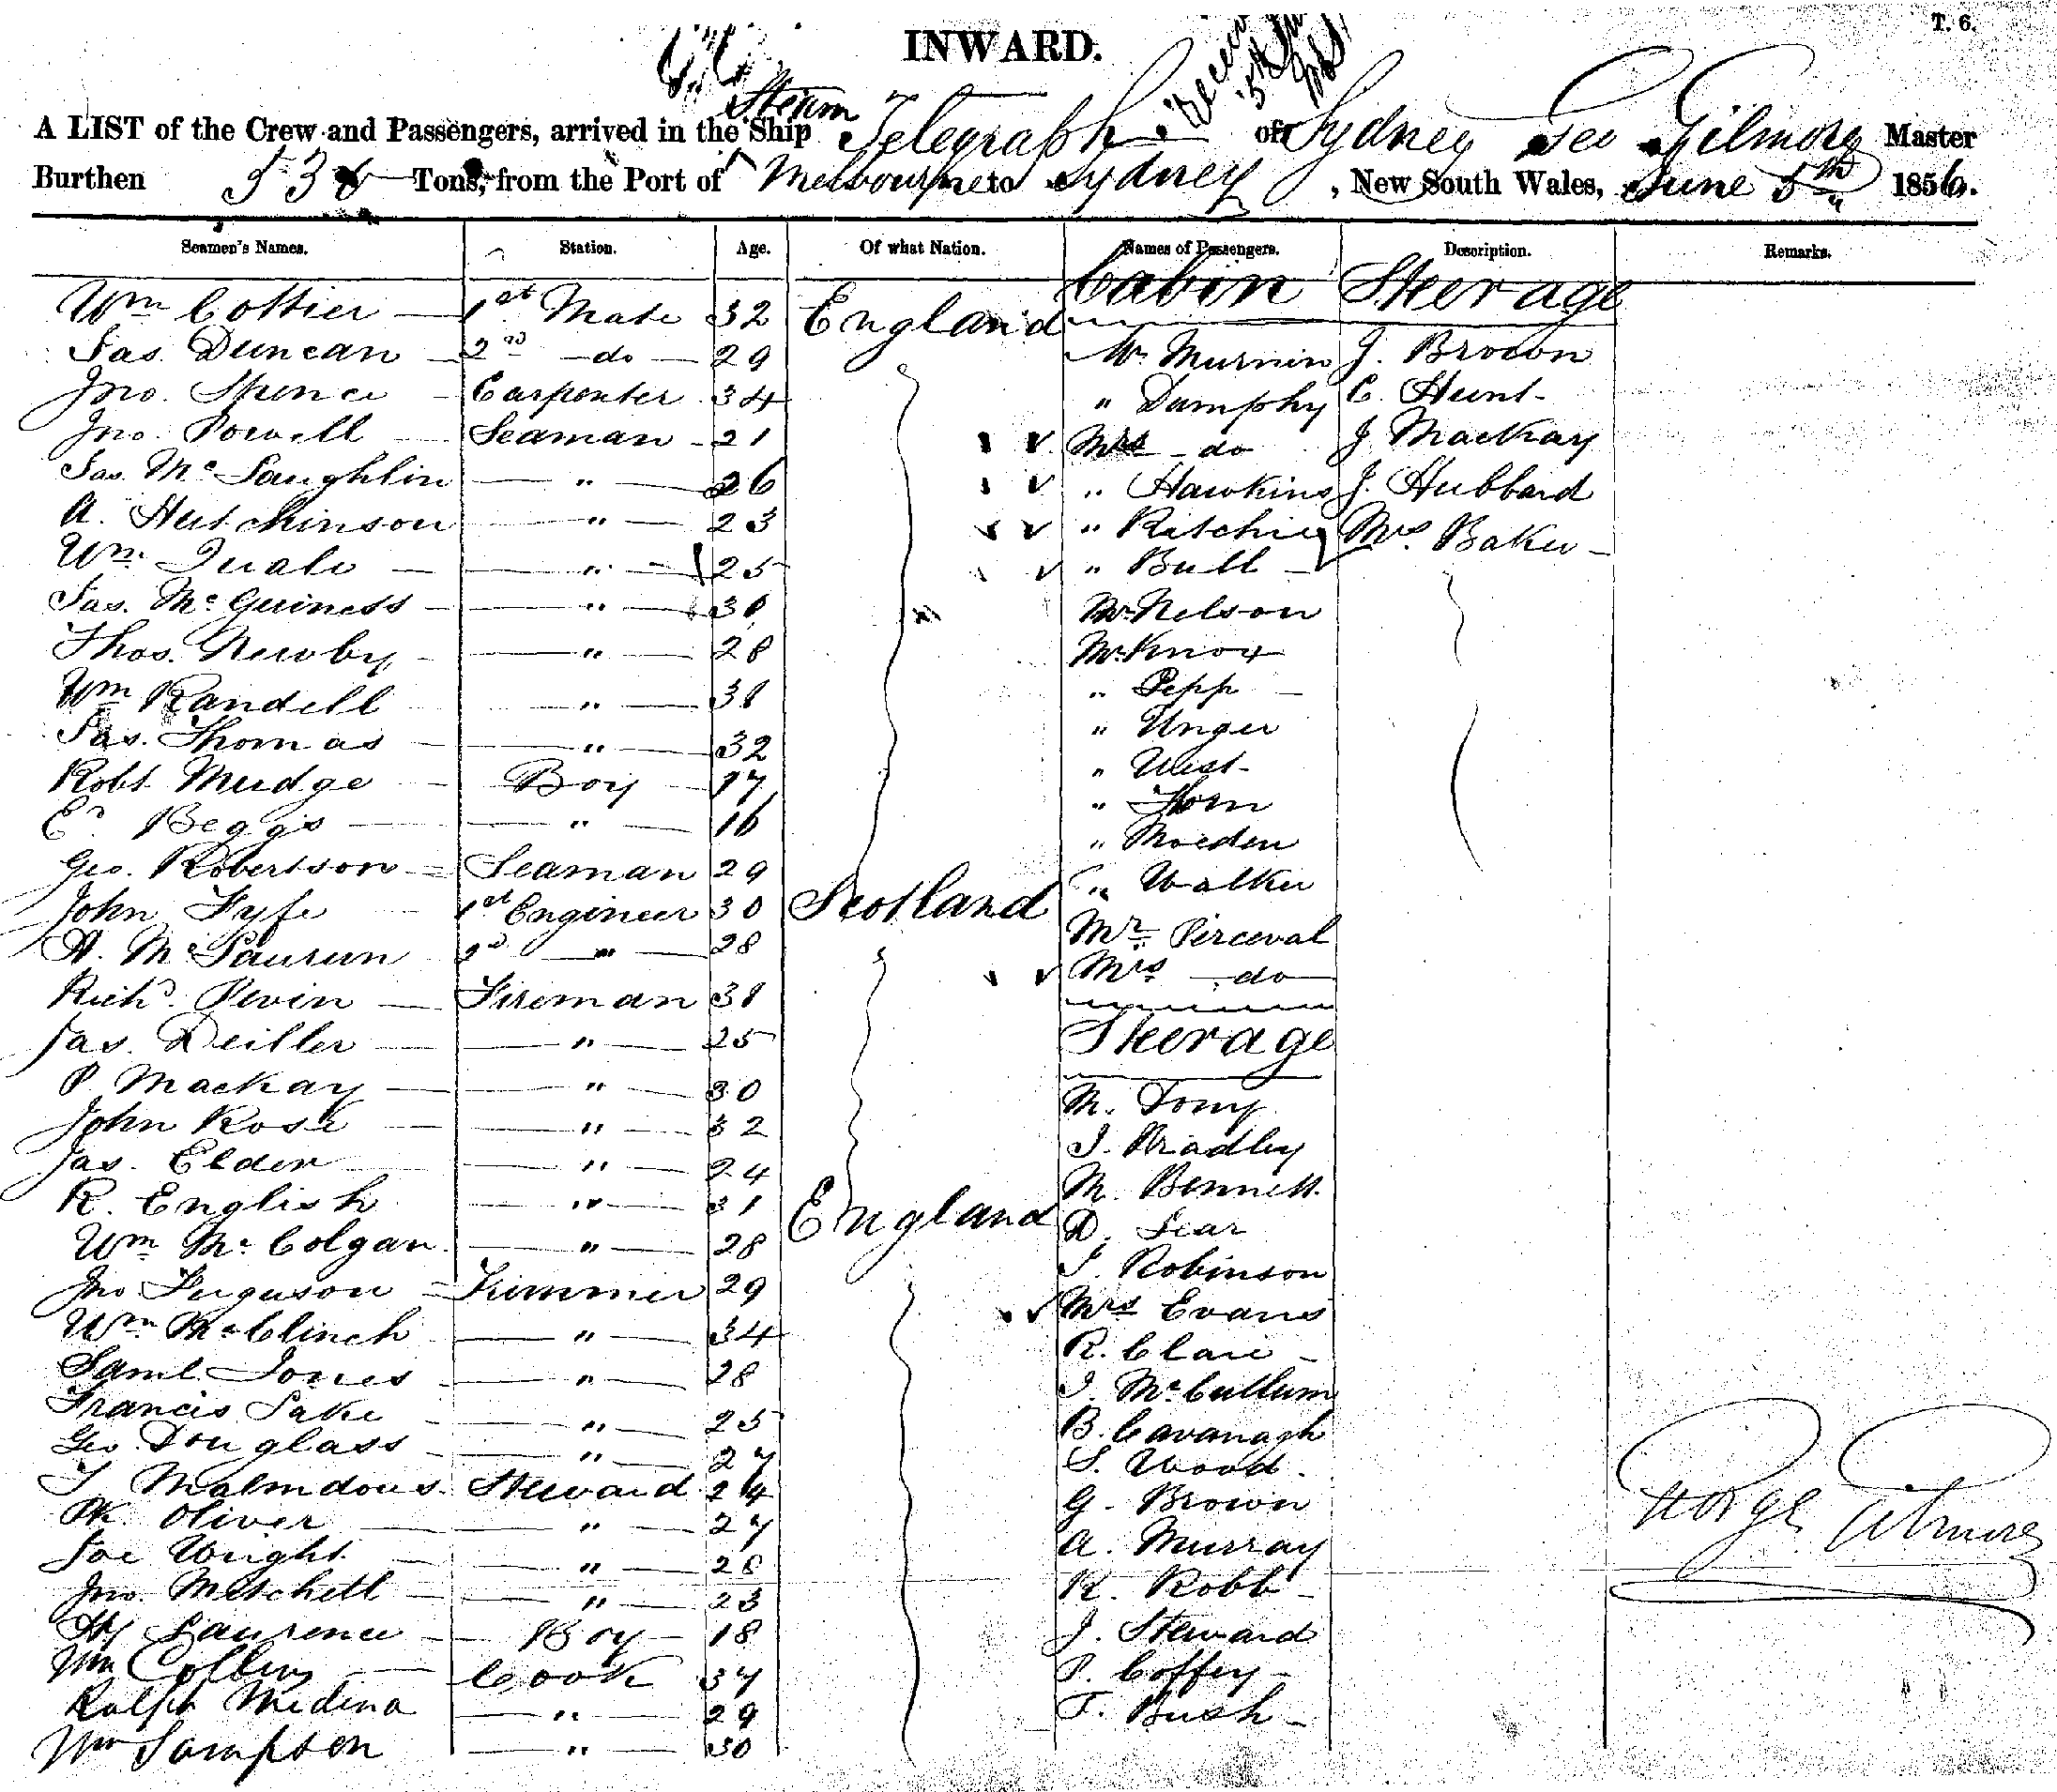 INWARD.
T. 6.
Steam
A LIST of the Crew and Passengers, arrived in the Ship Telegraph of Sydney Geo Gilmore Master
Burthen 538 Tons, from the Port of Melbourne to Sydney, New South Wales, June 5th 1856.
Seamen's Names. Station. Age. Of what Nation. Names of Passengers. Description. Remarks.
Cabin Steerage
Wm Cottier 1st Mate 32 England
Jas. Duncan 2nd do 29 Mr. Murnin J. Brown
Jno. Spence Carpenter 34 " Damphy C. Hunt
Jno. Powell Seaman 21 Mrs do J Mackay
Jas. McLaughlin " 26 " Hawkins J. Hubbard
A. Hutchinson " 23 " Ritchie Mrs. Baker
Wm Quale " 25 " Bull
Jas. McGuiness " 30 Mr Nelson
Thos. Newby " 28 Mr Knox
Wm Randell " 31 " Pepp
Jas. Thomas " 32 " Unger
Robt Mudge Boy 17 " West
Ed. Beggs " 16 " Horn
" Moeden
Geo. Robertson Seaman 29
John Fyfe 1st Engineer 30 Scotland " Walker
A. McLauren 2d " 28 Mr Perceval
Richd. Pevin Fireman 31 Mrs do
Jas. Deiller " 25 Steerage
P. Mackay " 30 M. Tomy
John Rose " 32 J. Bradley
Jas. Elder " 24 M. Bennett
R. English " 31 England D. Lear
Wm McColgan " 28 J. Robinson
Jno Ferguson Trimmer 29 Mrs Evans
Wm McClinch " 34 R. Clare
Saml. Jones " 28 J. McCullum
Francis Lake " 25 B. Cavanagh
Geo. Douglass " 27 S. Wood
J Malmdous Steward 24 G. Brown
Pk. Oliver " 27 A. Murray
Joe Wright " 28 R. Robb
Jno. Mitchell " 23
Hy Laurence Boy 18 J. Steward
Wm Collins Cook 37 P. Coffey
Ralph Medina " 29 F. Bush
Wm Sampson " 30
George Gilmore